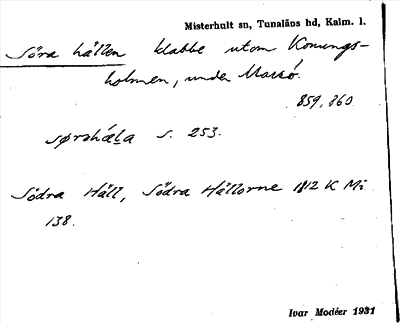 Misterhult sn, Tunaläns hd, Kalm. l.
Söra hällen klabbe utom Konungs-
holmen, under Marsö.
859, 860
s. 253.
Södra Häll, Södra Hällorne 1812 K Mi
138.
Ivar Modéer 1931